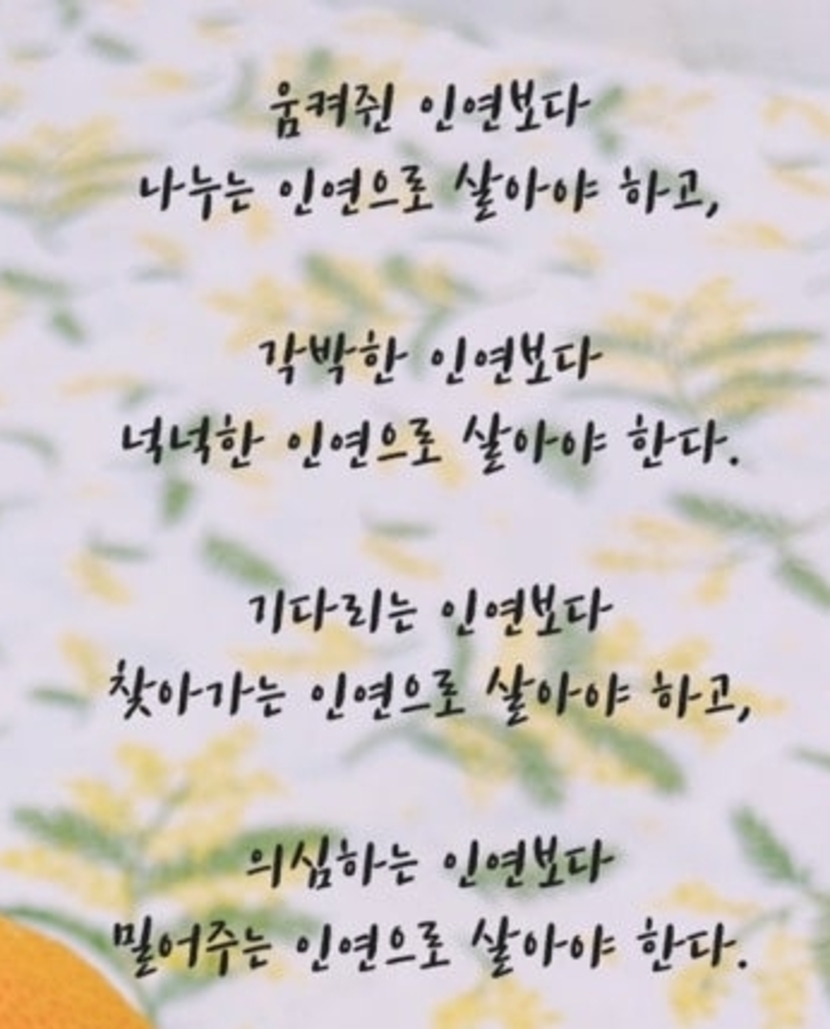 움켜쥔 인연보다
나누는 인연으로 살아야 하고,
각박한 인연보다
넉넉한 인연으로 살아야 한다.
기다리는 인연보다
찾아가는 인연으로 살아야 하고,
의심하는 인연보다
밀어주는 인연으로 살아야 한다.